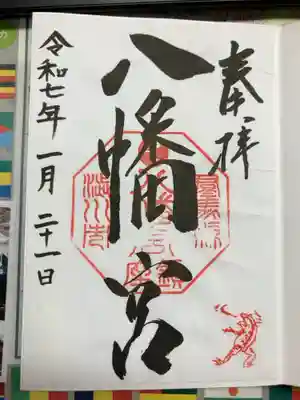 奉拝
八幡宮
令和七年 一月 二十一日